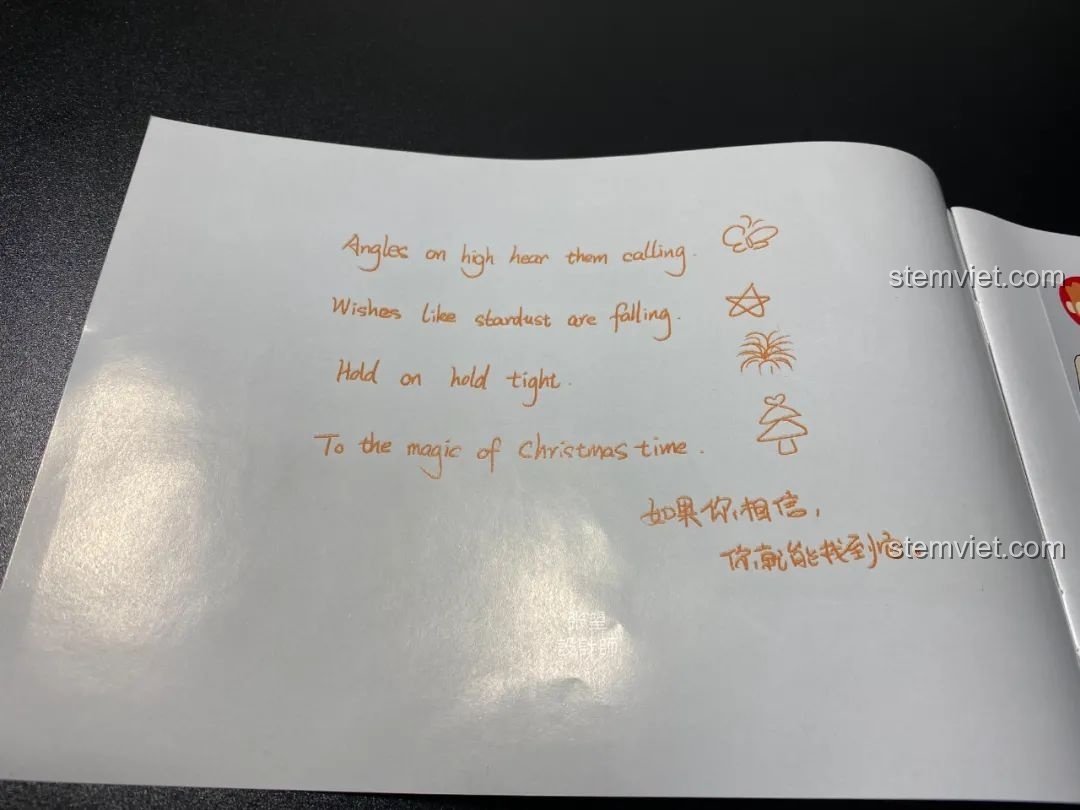 Angles on high hear them calling.
Wishes like stardust are falling.
Hold on hold tight.
To the magic of Christmas time.
如果你相信,
你就能找到它
stemviet.com
stemviet.com
設計師